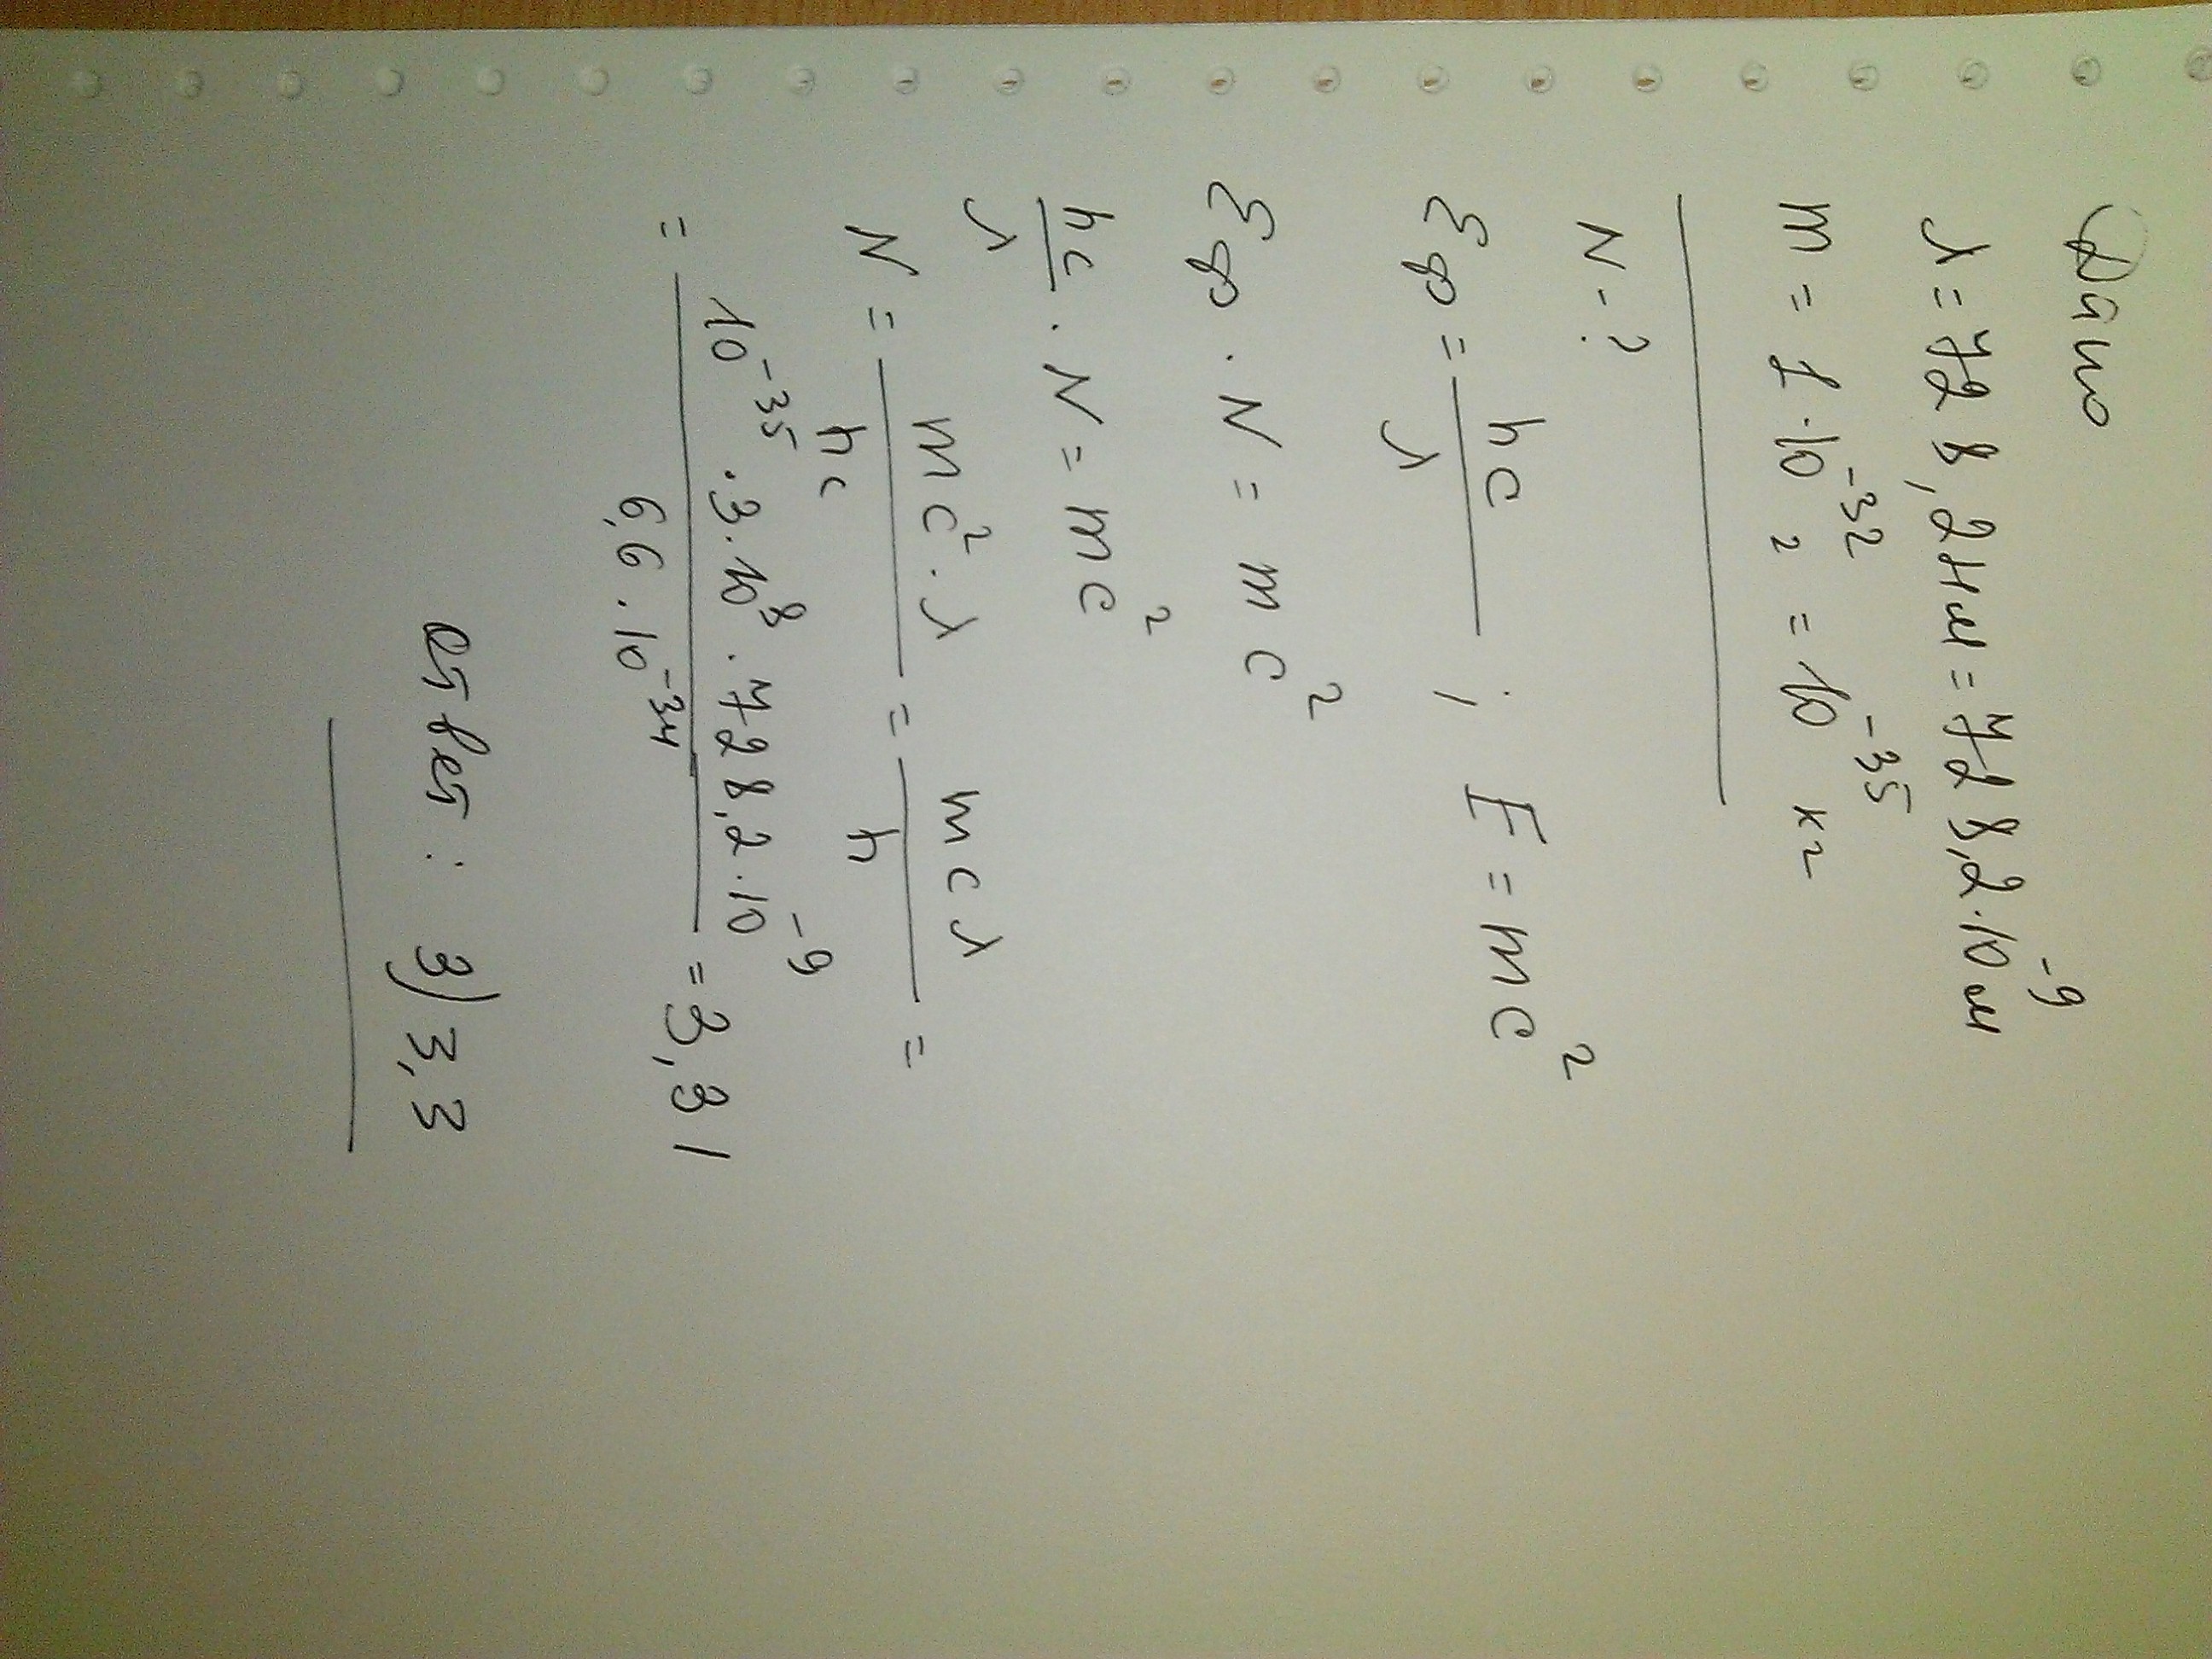 Дано
λ = 728,2 нм = 728,2 · 10⁻⁹ м
m = 1 · 10⁻³² г = 10⁻³⁵ кг
N - ?
ξф = hc/λ ; E = mc²
ξф · N = mc²
hc/λ · N = mc²
N = mc² · λ / hc = mcλ / h =
= 10⁻³⁵ · 3 · 10⁸ · 728,2 · 10⁻⁹ / 6,6 · 10⁻³⁴ = 3,31
ответ : 3) 3,3